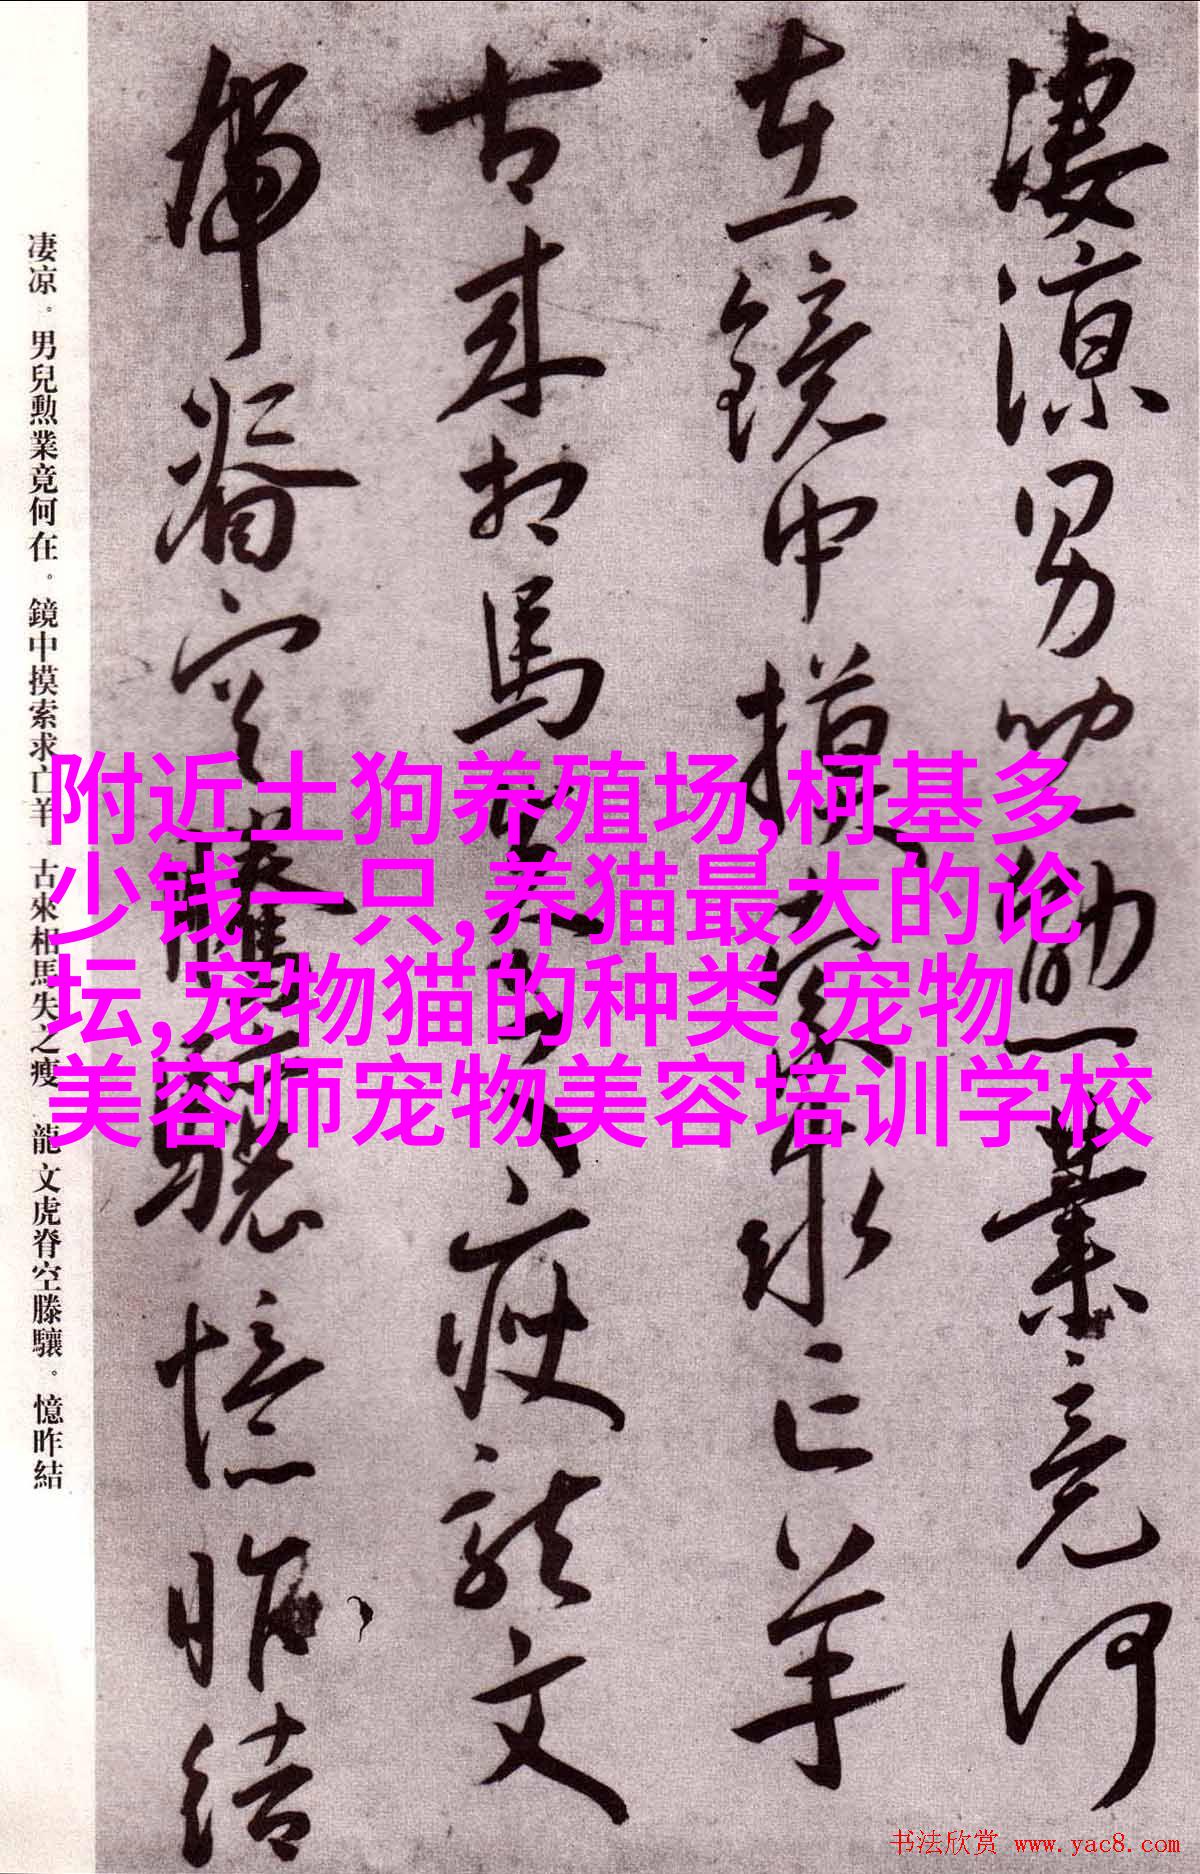 凄涼男兒勳業竟何
在鏡中摸索求亡羊
古來相馬失之瘦龍文
虎脊空騰驤憶昨結
凄凉。男兒勲業竟何在。鏡中摸索求亡羊。古來相馬失之瘦。龍文虎脊空滕驤。憶昨結
附近土狗养殖场,柯基多
少钱一只,养猫最大的论
坛,宠物猫的种类,宠物
美容师宠物美容培训学校
书法欣赏 www.yac8.com